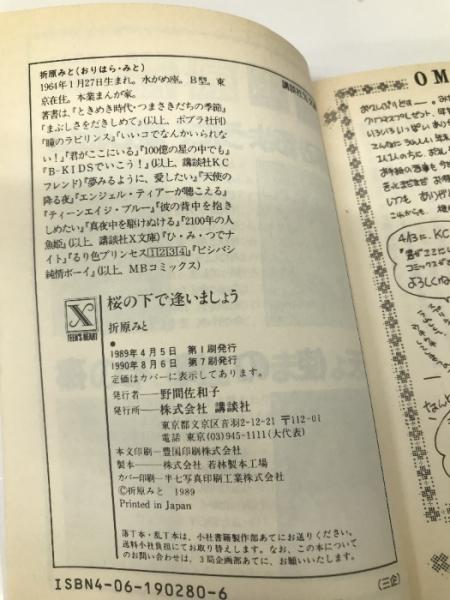 折原みと(おりはら・みと)
1964年1月27日生まれ。水がめ座。B型。東
京在住。本業まんが家。
著書は、『ときめき時代・つまさきだちの季節』
『まぶしさをだきしめて』(以上、ポプラ社刊)
『瞳のラビリンス』『いいコでなんかいられな
い!』『君がここにいる』『100億の星の中でも』
『B-KIDSでいこう!』(以上、講談社KC
フレンド)『夢みるように、愛したい』『天使の
降る夜』『エンジェル・ティアーが聴こえる』
『ティーンエイジ・ブルー』『彼の背中を抱き
しめたい』『真夜中を駆けぬける』『2100年の人
魚姫』(以上、講談社X文庫)『ひ・み・つでナ
イト』『るり色プリンセス1 2 3 4』『ビシバシ
純情ボーイ』(以上、MBコミックス)
X
TEEN'S HEART
桜の下で逢いましょう
折原みと
1989年4月5日 第1刷発行
1990年8月6日 第7刷発行
定価はカバーに表示してあります。
発行者——野間佐和子
発行所——株式会社 講談社
東京都文京区音羽2-12-21 〒112-01
電話 東京(03)945-1111(大代表)
本文印刷—豊国印刷株式会社
製本——株式会社 若林製本工場
カバー印刷—半七写真印刷工業株式会社
©折原みと 1989
Printed in Japan
落丁本・乱丁本は、小社書籍製作部あてにお送りください。
送料小社負担にてお取り替えします。なお、この本について
のお問い合わせは、3局企画部あてに、お願いいたします。
ISBN4-06-190280-6
(三企)
OM
4/13に、KC